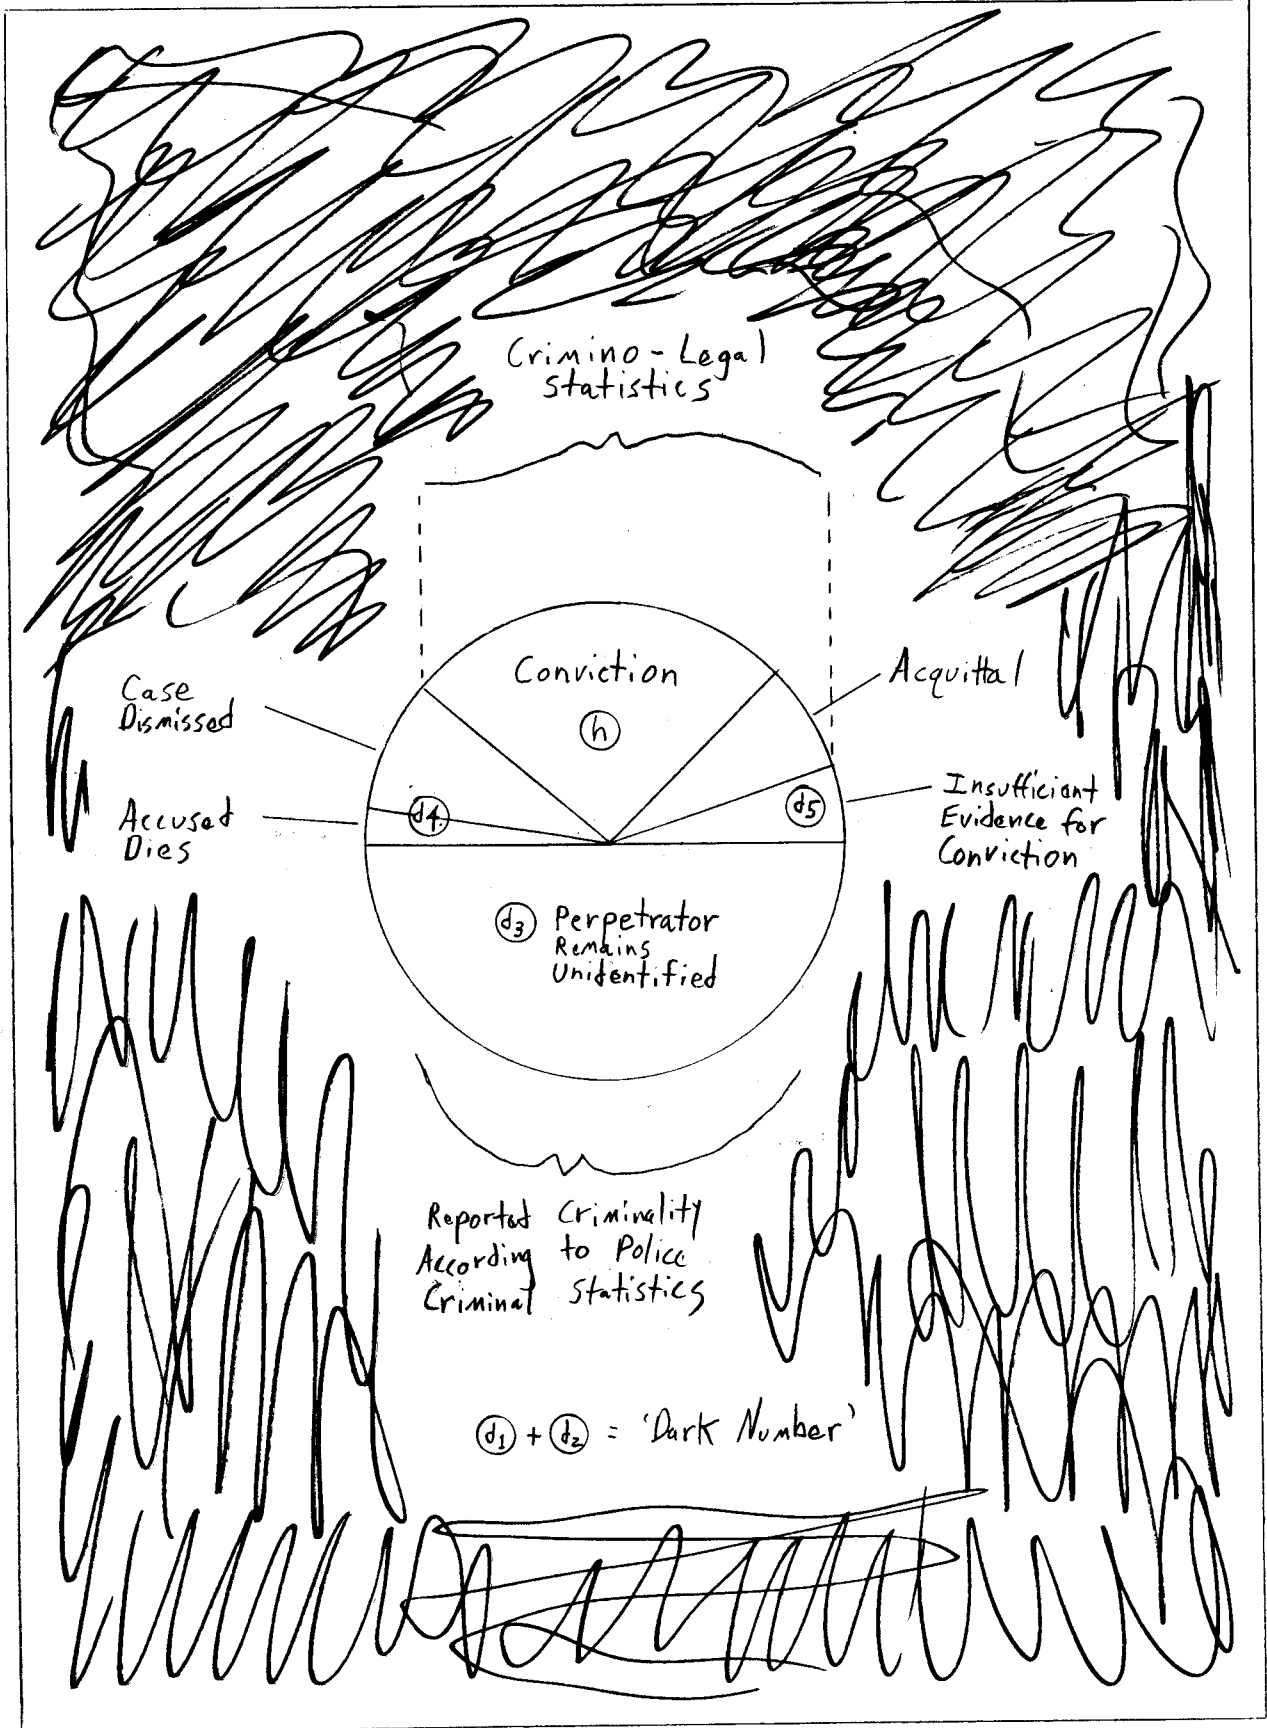 Crimino-Legal
Statistics
Conviction
h
Acquittal
Case
Dismissed
Accused
Dies
d4
d5
Insufficient
Evidence for
Conviction
d3 Perpetrator
Remains
Unidentified
Reported Criminality
According to Police
Criminal Statistics
d1 + d2 = 'Dark Number'